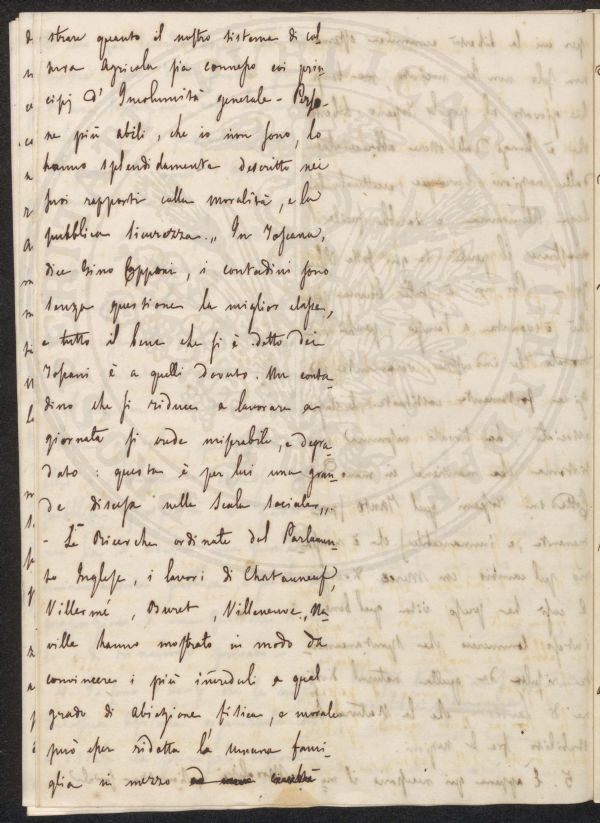 strare quanto il nostro sistema di col-
tura agricola sia connesso coi prin-
cipj d' Incolumità generale - Perso-
ne più abili, che io non sono, lo
hanno splendidamente descritto nei
suoi rapporti colla moralità, e la
pubblica sicurezza. „ In Toscana,
dice Gino Capponi, i contadini sono
senza questione la miglior classe,
e tutto il bene che si è detto dei
Toscani è a quelli dovuto. Un conta-
dino che si riduce a lavorare a
giornata si crede miserabile, e degra-
dato: questa è per lui una gran-
de discesa nella Scala sociale„.
- Le Ricerche ordinate dal Parlamen-
to Inglese, i lavori di Chatauneuf,
Villermé, Buret, Villeneuve, Na-
ville hanno mostrato in modo da
convincere i più increduli a qual
grado di abiezione fisica, e morale
può esser ridotta la umana fami-
glia in mezzo